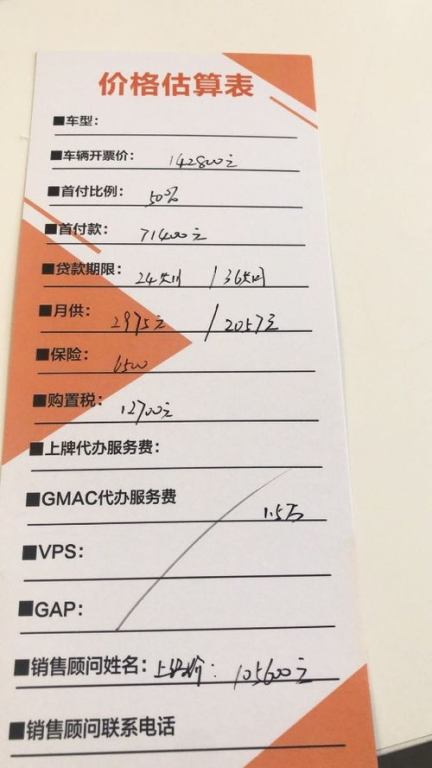 价格估算表
■车型：
■车辆开票价： 142800元
■首付比例： 50%
■首付款： 71400元
■贷款期限： 24期 / 36期
■月供： 2975元 / 2057元
■保险： 6500
■购置税： 12700元
■上牌代办服务费：
■GMAC代办服务费 1.5万
■VPS：
■GAP：
■销售顾问姓名： 105600元
■销售顾问联系电话